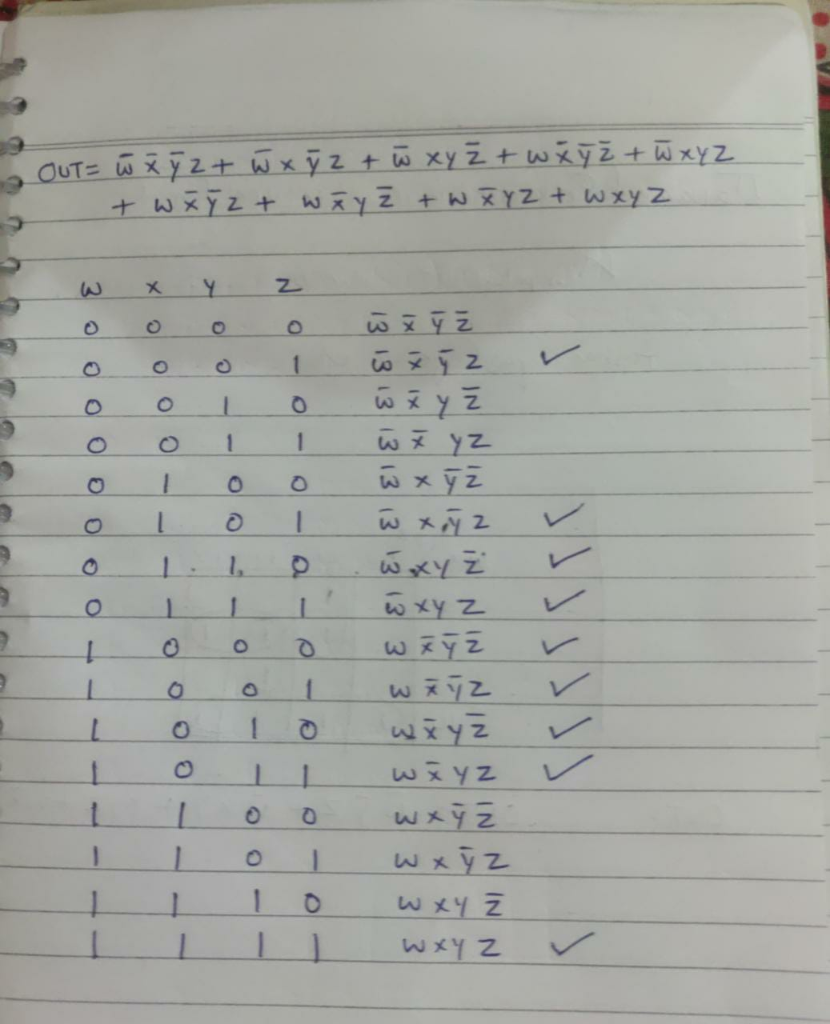 OUT= w̅ x̅ y̅ z + w̅ x y̅ z + w̅ x y z̅ + w x̅ y̅ z̅ + w̅ x y z
+ w x̅ y̅ z + w x̅ y z̅ + w x̅ y z + w x y z
w x y z
0 0 0 0 w̅ x̅ y̅ z̅
0 0 0 1 w̅ x̅ y̅ z ✓
0 0 1 0 w̅ x̅ y z̅
0 0 1 1 w̅ x̅ y z
0 1 0 0 w̅ x y̅ z̅
0 1 0 1 w̅ x y̅ z ✓
0 1 1 0 w̅ x y z̅ ✓
0 1 1 1 w̅ x y z ✓
1 0 0 0 w x̅ y̅ z̅ ✓
1 0 0 1 w x̅ y̅ z ✓
1 0 1 0 w x̅ y z̅ ✓
1 0 1 1 w x̅ y z ✓
1 1 0 0 w x y̅ z̅
1 1 0 1 w x y̅ z
1 1 1 0 w x y z̅
1 1 1 1 w x y z ✓